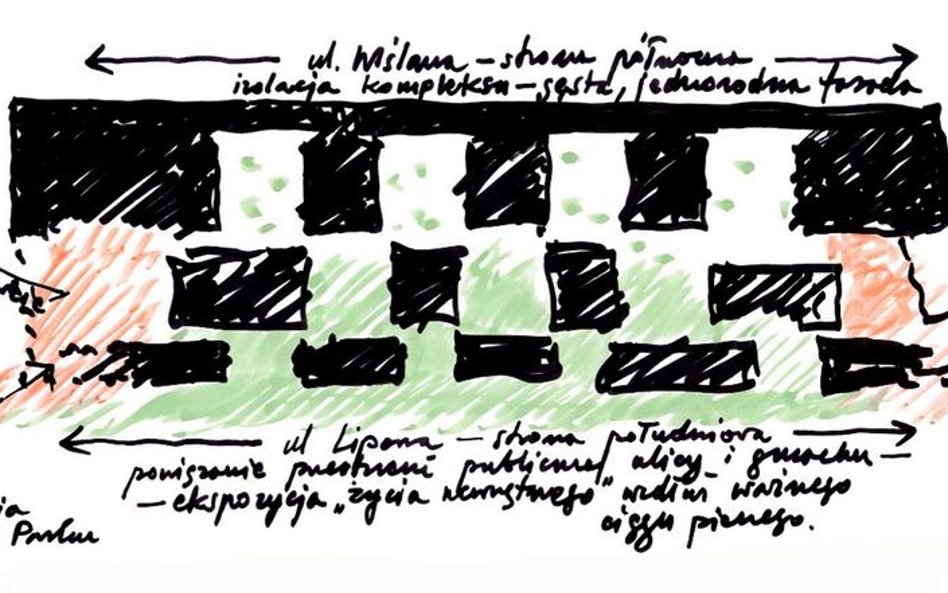 ul. Wiślana – strona północna
izolacja kompleksu – gęsta, jednorodna fasada
ul Lipowa – strona południowa
powiązanie przestrzeni publicznej ulicy i gmachu –
– ekspozycja „życia wewnętrznego" wzdłuż ważnego
ciągu pieszego.